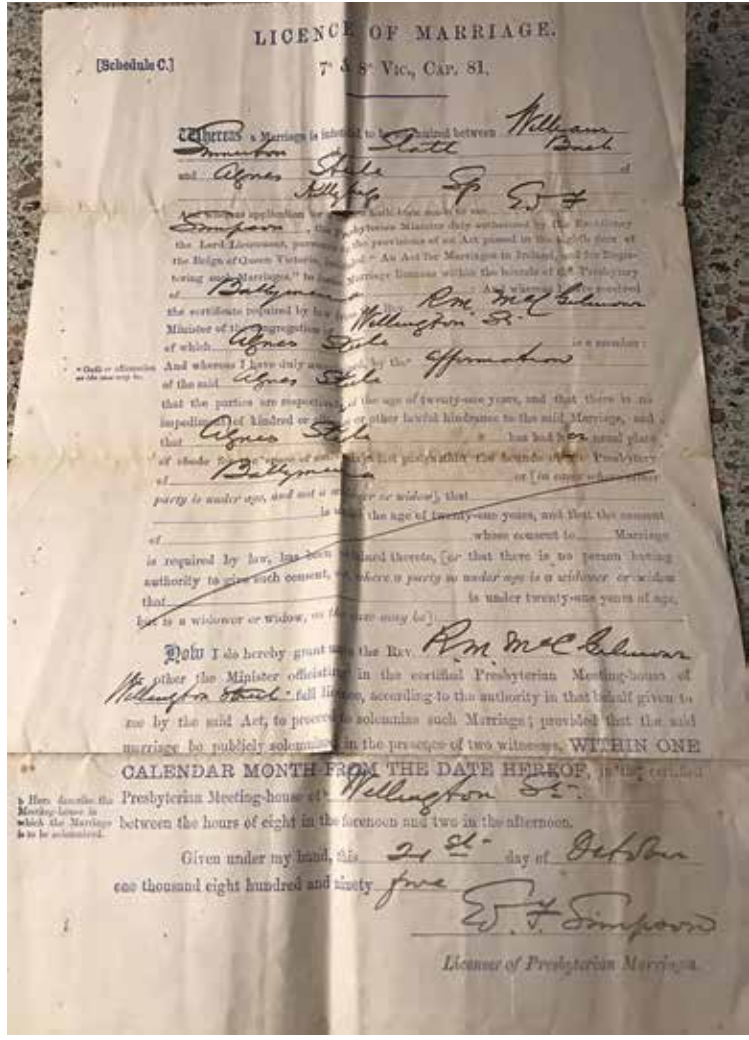 LICENCE OF MARRIAGE.
[Schedule C.]
7° & 8° VIC., CAP. 81.
Whereas a Marriage is intended to be solemnized between William
Slatt Bach
and Agnes Stele of
Sp E F
And whereas application made to me
Simpson, the Presbyterian Minister duly authorised by the
the Lord Lieutenant, pursuant to the provisions of an Act passed in the eighth year of
the Reign of Queen Victoria, "An Act for Marriages in Ireland, and for Regis-
tering such Marriages," to Marriage licenses within the bounds of the Presbytery
of Ballymena. And whereas I have received
the certificate required by law from Rev. R.M. McC Gilmour
Minister of the Congregation of Wellington St.
of which Agnes Stele is a member:
a Oath or affirmation
as the case may be.
And whereas I have duly by the a affirmation
of the said Agnes Stele
that the parties are respectively of the age of twenty-one years, and that there is no
impediment of kindred or or other lawful hindrance to the said Marriage, and
that Agnes Stele has had her usual place
of abode for the space of last past within the bounds of the Presbytery
of Ballymena or [in case where either
party is under age, and not a widower or widow], that
is under the age of twenty-one years, and that the consent
of whose consent to Marriage
is required by law, has been obtained thereto, [or that there is no person having
authority to give such consent, or, where a party so under age is a widower or widow
that is under twenty-one years of age,
but is a widower or widow, as the case may be].
Now I do hereby grant unto the REV. R.M. McC Gilmour
or other the Minister officiating in the certified Presbyterian Meeting-house of
Wellington Street full licence, according to the authority in that behalf given to
me by the said Act, to proceed to solemnize such Marriage; provided that the said
marriage be publicly solemnized in the presence of two witnesses, WITHIN ONE
CALENDAR MONTH FROM THE DATE HEREOF, in the certified
b Here describe the
Meeting-house in
which the Marriage
is to be solemnized.
Presbyterian Meeting-house of b Wellington St.
between the hours of eight in the forenoon and two in the afternoon.
Given under my hand, this 21st day of October
one thousand eight hundred and ninety five
E. F. Simpson
Licenser of Presbyterian Marriages.